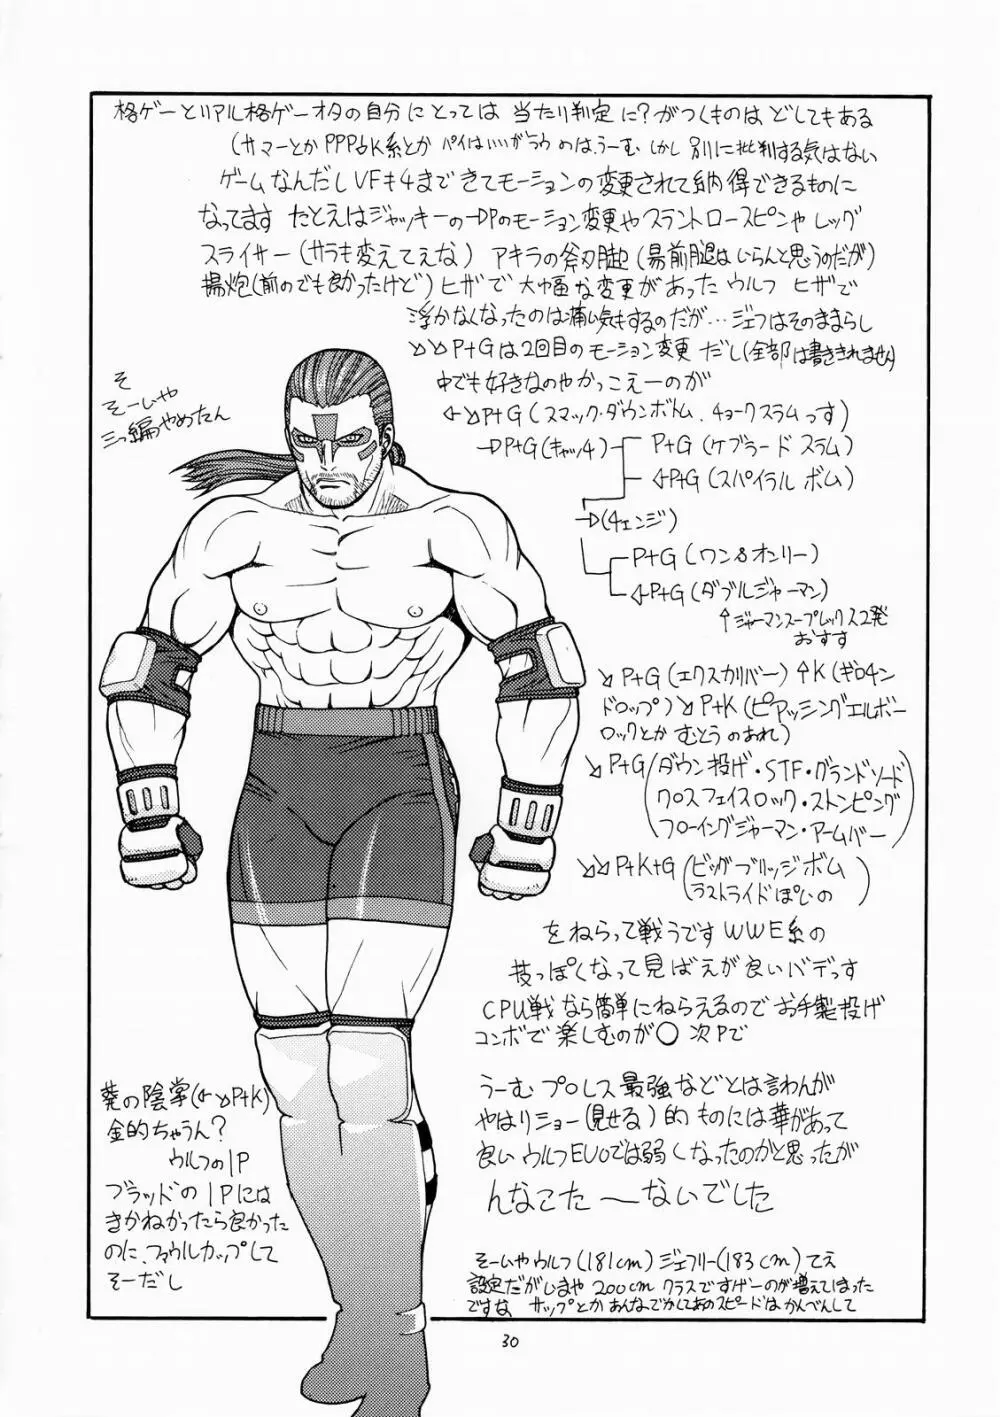 格ゲーとリアル格ゲーオタの自分にとっては 当たり判定に?がつくものはどしてもある
(サマーとかPPP凸K系とか パイはいいがラウのは、うーむ しかし 別に批判する気はない
ゲームなんだしVFも4まできてモーションの変更されて納得できるものに
なってます たとえばジャッキーの→Pのモーション変更やスラントロースピンや レッグ
スライサー(サラも変えてえな) アキラの斧刃脚(昜前腿はいらんと思うのだが)
揚炮(前のでも良かったけど)ヒザで大幅な変更があった ウルフ ヒザで
浮かなくなったのは痛い気もするのだが…ジェフはそのままらし
↘↘P+Gは2回目のモーション変更 だし(全部は書ききれません)
中でも好きなのやかっこえーのが
そ
そーいや
三つ編やめたん
←↘P+G(スマック・ダウンボトム、チョークスラムっす)
→P+G(キャッチ) P+G(ケブラード スラム)
←P+G(スパイラル ボム)
→(チェンジ)
P+G(ワン&オンリー)
←P+G(ダブルジャーマン)
↑ジャーマンスープレックス2発
おすす
↘P+G(エクスカリバー)↑K(ギロチン
ドロップ)↘P+K(ピアッシングエルボー
ロックとか むとうのあれ)
↘P+G(ダウン投げ・STF・グランドソード
クロスフェイスロック・ストンピング
フローイングジャーマン・アームバー)
↘↘P+K+G(ビッグブリッジボム
(ラストライドぽいの)
をねらって戦うです WWE系の
技っぽくなって見ばえが良いバデっす
CPU戦なら簡単にねらえるので お手製投げ
コンボで楽しむのが〇 次Pで
葵の陰掌(←↘P+K)
金的ちゃうん?
ウルフの1P
ブラッドの1Pには
きかねかったら良かった
のに、ファウルカップして
そーだし
うーむ プロレス最強などとは言わんが
やはりショー(見せる)的ものには華があって
良い ウルフEVOでは弱くなったのかと思ったが
んなこたーないでした
そーいやウルフ(181cm)ジェフリー(183cm)てえ
設定だがいまや 200cm クラスですげーのが増えてしまった
ですな サップとかあんなでかしてあのスピードはかんべんして
30